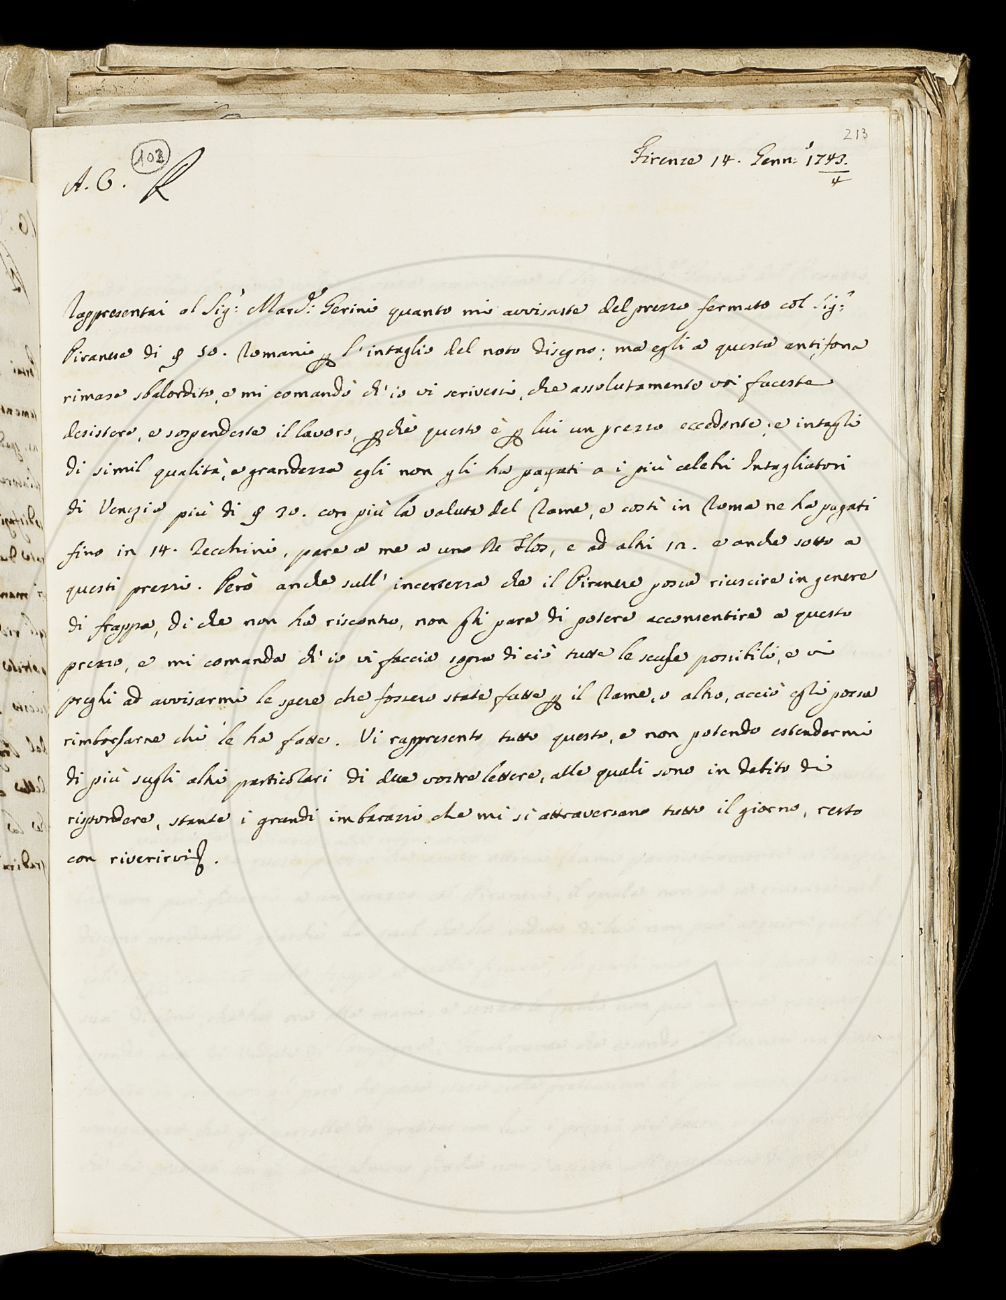 213
103
Firenze 14. Genn.º 1743.
4
A. C. R
Rappresentai al Sig.r March.e Gerini quanto mi avvisaste del prezzo fermato col Sig.r
Piranese di 50. Romani l'intaglio del noto disegno; ma egli a questa antifona
rimase sbalordito, e mi comandò ch'io vi scrivessi, che assolutamente voi faceste
desistere, e sospendeste il lavoro, che questo è lui un prezzo eccedente; e intagli
di simil qualità, e grandezza egli non gli ha pagati a i più celebri Intagliatori
di Venezia più di 30. con più la valuta del Rame, e costì in Roma ne ha pagati
fino in 14. Zecchini, pare a me a uno De Flos, e ad altri 12. e anche sotto a
questi prezzi. Però anche sull'incertezza che il Piranese possa riuscire in genere
di frappa, di che non ha riscontro, non gli pare di potere acconsentire a questo
prezzo, e mi comanda ch'io vi faccia sopra di ciò tutte le scuse possibili, e vi
preghi ad avvisarmi le spese che fossero state fatte il Rame, o altro, acciò egli possa
rimborsarne chi le ha fatte. Vi rappresento tutto questo, e non potendo estendermi
di più sugli altri particolari di due vostre lettere, alle quali sono in debito di
rispondere, stante i grandi imbarazzi che mi si attraversano tutto il giorno, resto
con riverirvi.